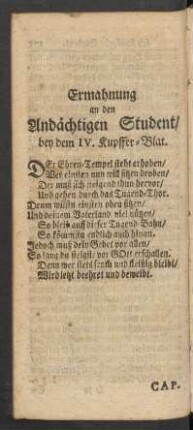 Ermahnung
an den
Andächtigen Student/
bey dem IV. Kupffer-Blat.
DEr Ehren-Tempel steht erhoben/
Wer einsten nun will sitzen droben/
Der muß sich neigend thun hervor/
Und gehen durch das Tugend-Thor.
Drum willst einsten oben sitzen/
Und deinem Vaterland viel nützen/
So bleib auff dieser Tugend-Bahn/
So kommstu endlich auch hinan.
Jedoch muß dein Gebet vor allen/
So lang du steigst/ vor GOtt erschallen.
Denn wer stets fromm und fleissig bleibt/
Wird letzt beehret und beweibt.
CAP.